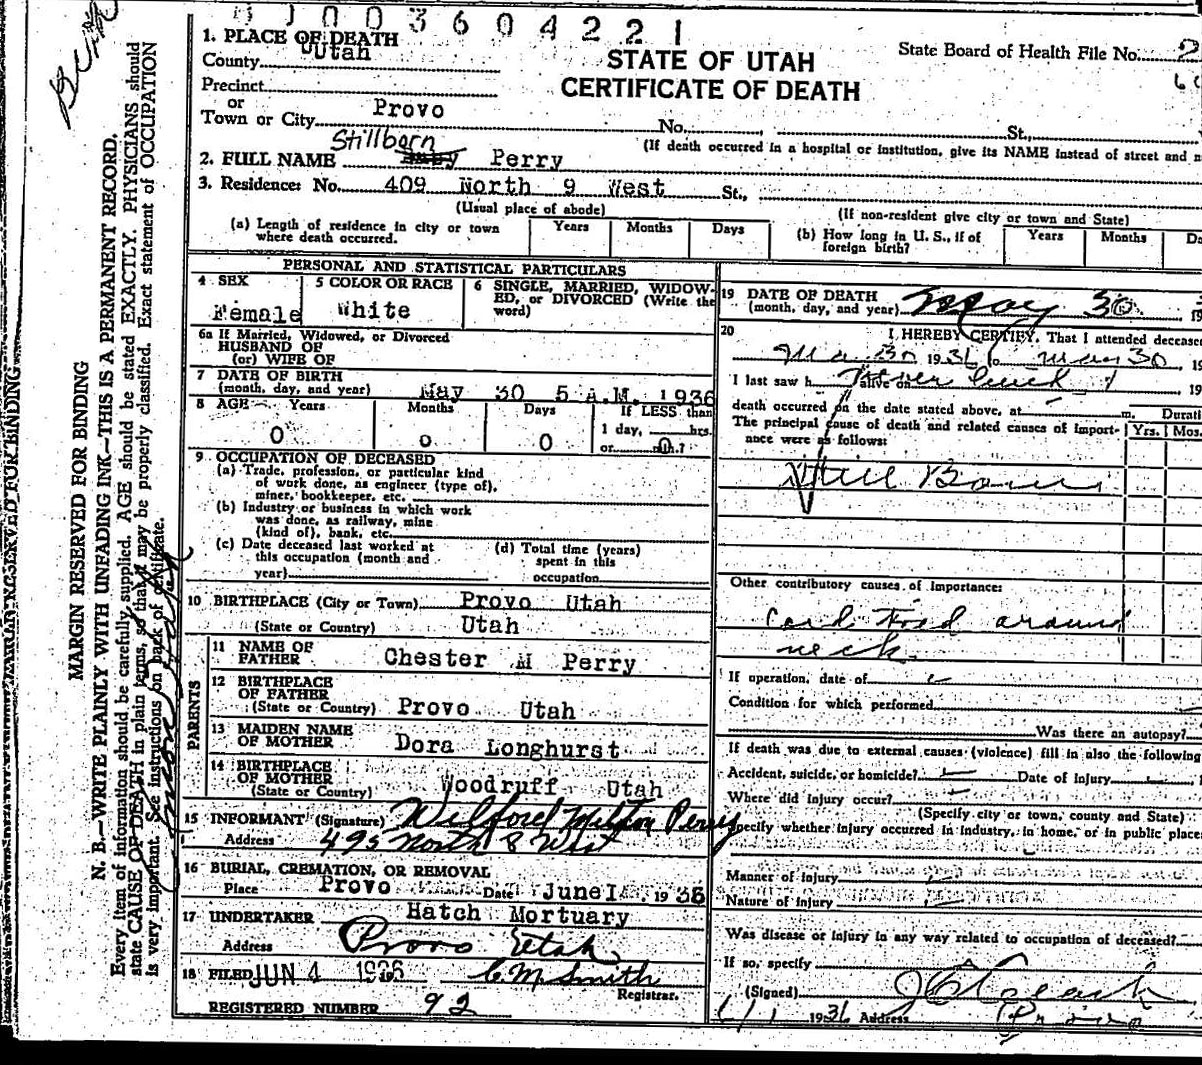 N J 0 0 3 6 0 4 2 2 1
1. PLACE OF DEATH
County Utah
STATE OF UTAH
CERTIFICATE OF DEATH
State Board of Health File No.
Precinct
or
Town or City Provo No. , St.
(If death occurred in a hospital or institution, give its NAME instead of street and
Stillborn
2. FULL NAME Baby Perry
3. Residence: No. 409 North 9 West St.,
(Usual place of abode)
(If non-resident give city or town and State)
(a) Length of residence in city or town where death occurred. Years Months Days
(b) How long in U. S., if of foreign birth? Years Months
PERSONAL AND STATISTICAL PARTICULARS
4 SEX Female
5 COLOR OR RACE White
6 SINGLE, MARRIED, WIDOW-
ED, or DIVORCED (Write the
word)
6a If Married, Widowed, or Divorced
HUSBAND OF
(or) WIFE OF
7 DATE OF BIRTH
(month, day, and year) May 30 5 A.M. 1936
8 AGE Years Months Days If LESS than
1 day, hrs.
0 0 0 or 0 min.?
9 OCCUPATION OF DECEASED
(a) Trade, profession, or particular kind
of work done, as engineer (type of),
miner, bookkeeper, etc.
(b) Industry or business in which work
was done, as railway, mine
(kind of), bank, etc.
(c) Date deceased last worked at
this occupation (month and
year)
(d) Total time (years)
spent in this
occupation
10 BIRTHPLACE (City or Town) Provo Utah
(State or Country) Utah
PARENTS
11 NAME OF
FATHER Chester M Perry
12 BIRTHPLACE
OF FATHER
(State or Country) Provo Utah
13 MAIDEN NAME
OF MOTHER Dora Longhurst
14 BIRTHPLACE
OF MOTHER
(State or Country) Woodruff Utah
15 INFORMANT (Signature) Wilford Milton Perry
Address 495 North 8 West
16 BURIAL, CREMATION, OR REMOVAL
Place Provo Date June 1 1936
17 UNDERTAKER Hatch Mortuary
Address Provo Utah
18 FILED JUN 4 1936 C M Smith
Registrar.
REGISTERED NUMBER 92
19 DATE OF DEATH
(month, day, and year) May 30 19
20 I HEREBY CERTIFY, That I attended deceased
May 30 1936 to May 30, 19
I last saw h alive on 19
death occurred on the date stated above, at m.
The principal cause of death and related causes of import-
ance were as follows:
Yrs. Mos.
Still Born
Other contributory causes of importance:
Cord tied around
neck
If operation, date of
Condition for which performed
Was there an autopsy?
If death was due to external causes (violence) fill in also the following
Accident, suicide, or homicide? Date of injury
Where did injury occur?
(Specify city or town, county and State)
Specify whether injury occurred in industry, in home, or in public place
Manner of injury
Nature of injury
Was disease or injury in any way related to occupation of deceased?
If so, specify
(Signed)
6/1 1936 Address Provo
MARGIN RESERVED FOR BINDING
N. B.—WRITE PLAINLY WITH UNFADING INK—THIS IS A PERMANENT RECORD.
Every item of information should be carefully supplied. AGE should be stated EXACTLY. PHYSICIANS should
state CAUSE OF DEATH in plain terms, so that it may be properly classified. Exact statement of OCCUPATION
is very important. See instructions on back of certificate.
MARGIN RESERVED FOR BINDING